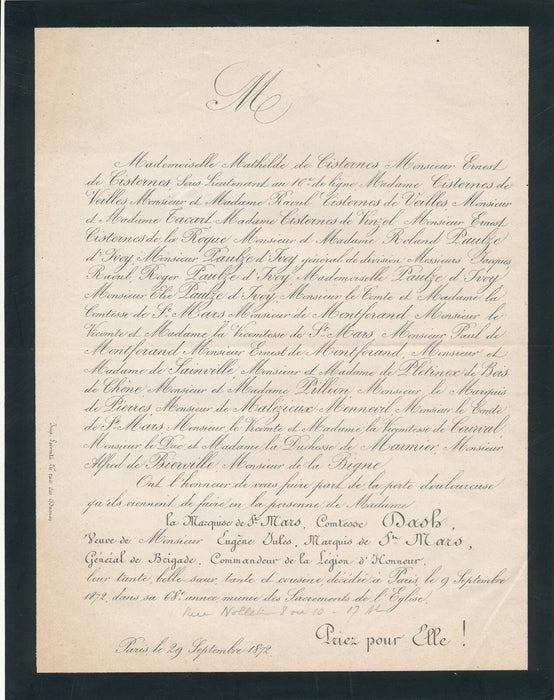 M
Mademoiselle Mathilde de Cisternes Monsieur Ernest
de Cisternes Sous Lieutenant au 10e de ligne Madame Cisternes de
Veilles Monsieur et Madame Raoul Cisternes de Veilles Monsieur
et Madame Cacart Madame Cisternes de Vinzel Monsieur Ernest
Cisternes de la Roque Monsieur et Madame Roland Paultze
d'Ivoy Monsieur Paultze d'Ivoy général de division Messieurs Jacques
Raoul, Roger Paultze d'Ivoy, Mademoiselle Paultze d'Ivoy
Monsieur Elie Paultze d'Ivoy, Monsieur le Comte et Madame la
Comtesse de St Mars Monsieur de Montferand Monsieur le
Vicomte et Madame la Vicomtesse de St Mars Monsieur Paul de
Montferand Monsieur Ernest de Montferand, Monsieur et
Madame de Sainville Monsieur et Madame de Plétinex de Bois
de Chêne Monsieur et Madame Pillion, Monsieur le Marquis
de Pierres Monsieur de Malézieux Menneril Monsieur le Comte
de St Mars Monsieur le Vicomte et Madame la Vicomtesse de Courval
Monsieur le Duc et Madame la Duchesse de Marmier, Monsieur
Alfred de Bierville Monsieur de la Bigne
Ont l'honneur de vous faire part de la perte douloureuse
qu'ils viennent de faire en la personne de Madame
la Marquise de St Mars, Comtesse Dash,
Veuve de Monsieur Eugène Jules, Marquis de St Mars,
Général de Brigade, Commandeur de la Légion d'Honneur,
leur tante, belle sœur, tante et cousine décédée à Paris, le 9 Septembre
1872, dans sa 68e année munie des Sacrements de l'Eglise.
Rue Nollet 8 ou 10 - 17
Priez pour Elle !
Paris le 29 Septembre 1872.
Imp. rue des Dames